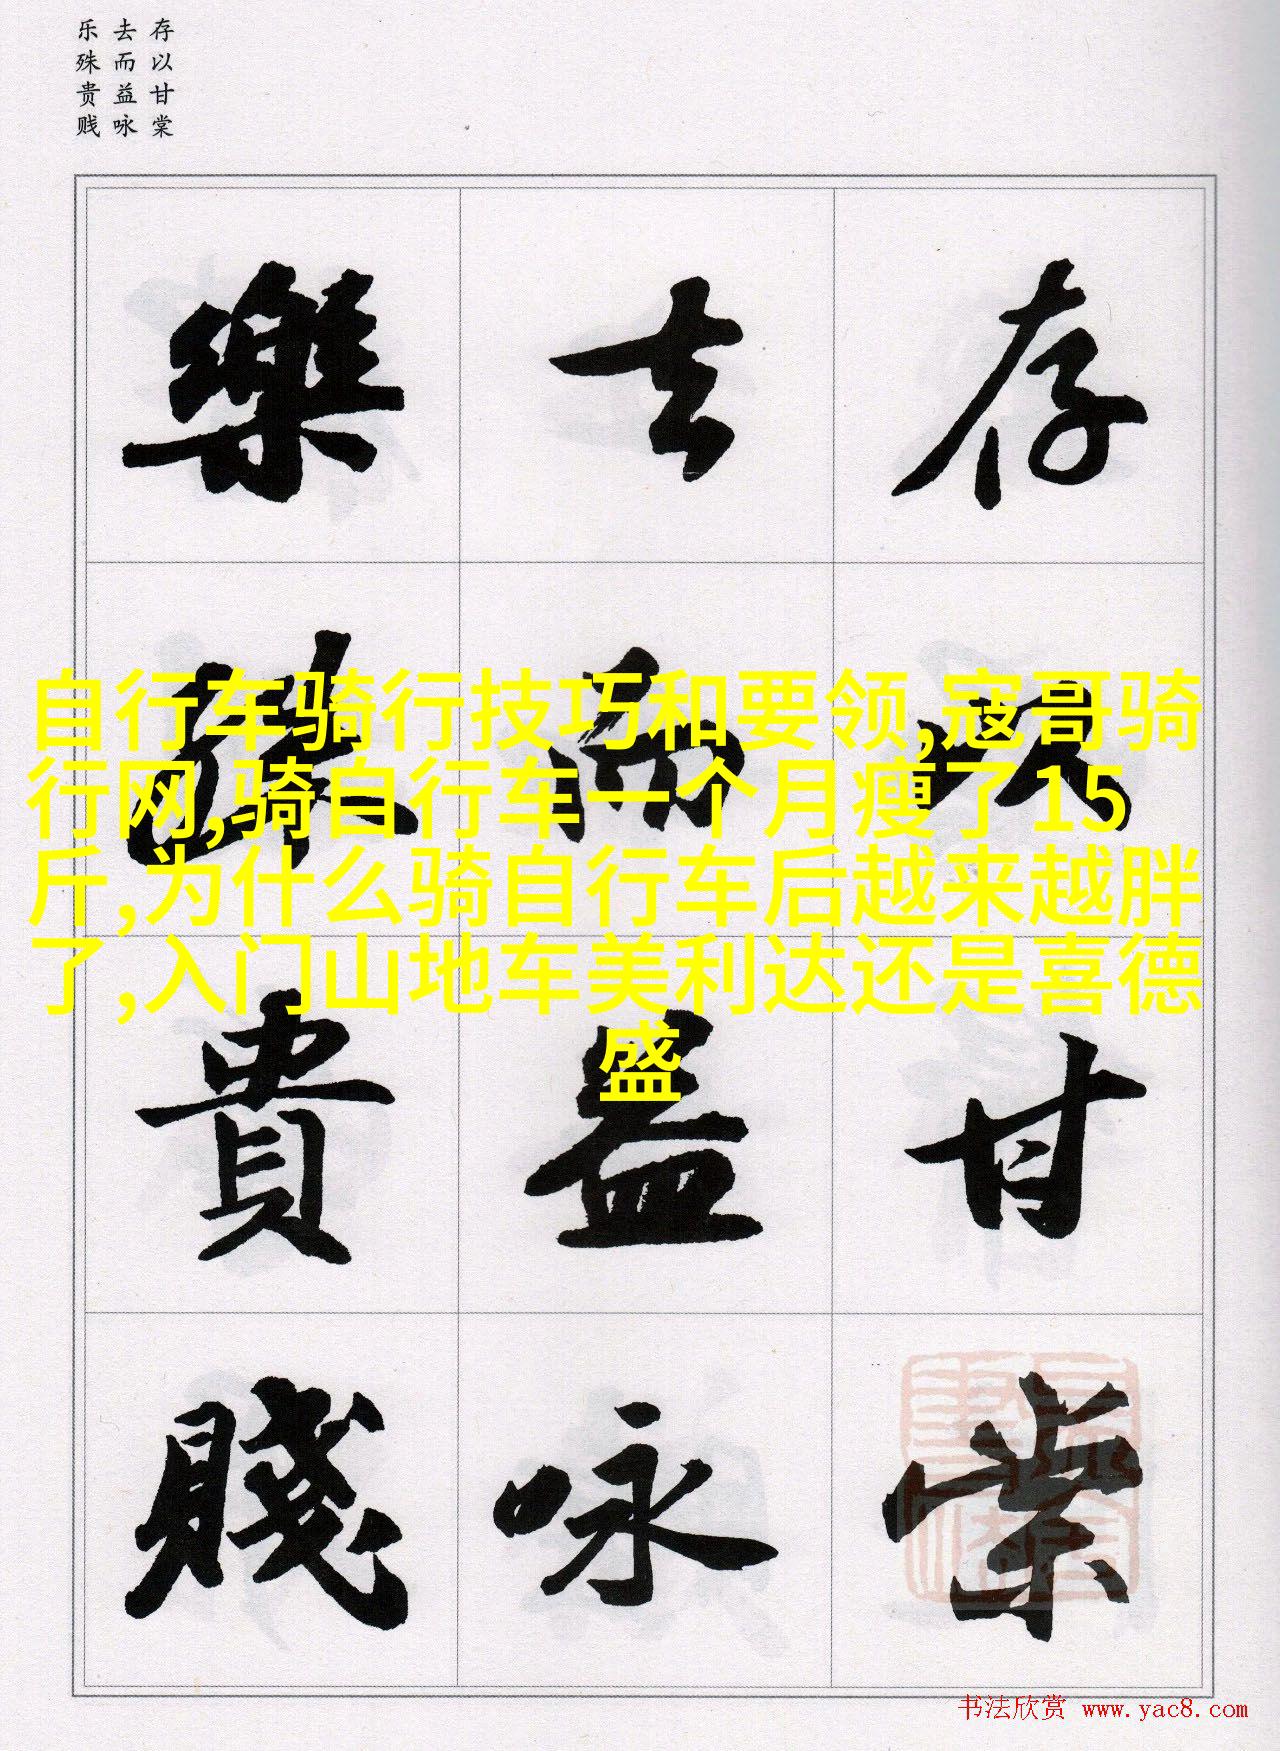 存以甘棠
去而益咏
乐殊贵贱
存以甘棠
去而益咏
樂殊貴賤
自行车骑行技巧和要领,寇哥骑
行网,骑自行车一个月瘦了15
斤,为什么骑自行车后越来越胖
了,入门山地车美利达还是喜德
盛
书法欣赏 www.yac8.com